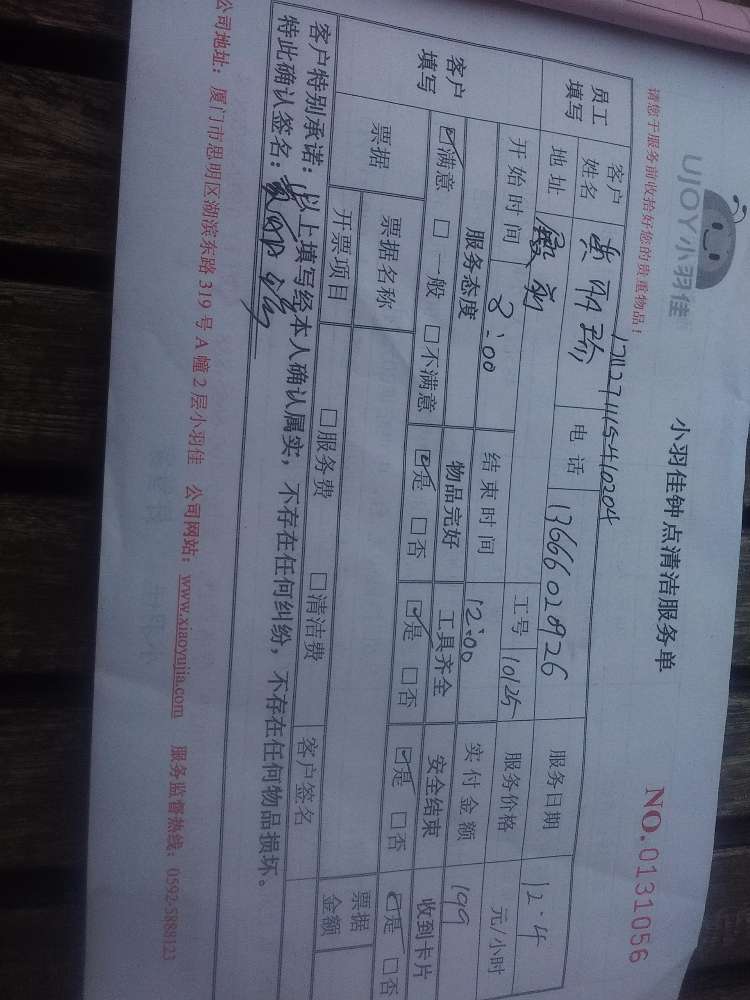 UJOY小羽佳
小羽佳钟点清洁服务单
NO.0131056
请您于服务前收拾好您的贵重物品！
员工填写 客户姓名 电话 13666028926 服务日期 12.4
地址 工号 10125 服务价格 元/小时
开始时间 8:00 结束时间 12:00 实付金额 199
客户填写 服务态度 物品完好 工具齐全 安全结束 收到卡片
☑满意 □一般 □不满意 ☑是 □否 ☑是 □否 ☑是 □否 ☑是 □否
票据 票据名称 票据金额
开票项目 □服务费 □清洁费 客户签名
客户特别承诺：以上填写经本人确认属实，不存在任何纠纷，不存在任何物品损坏。
特此确认签名：
公司地址：厦门市思明区湖滨东路319号A幢2层小羽佳 公司网站：www.xiaoyujia.com 服务监督热线：0592-5880123